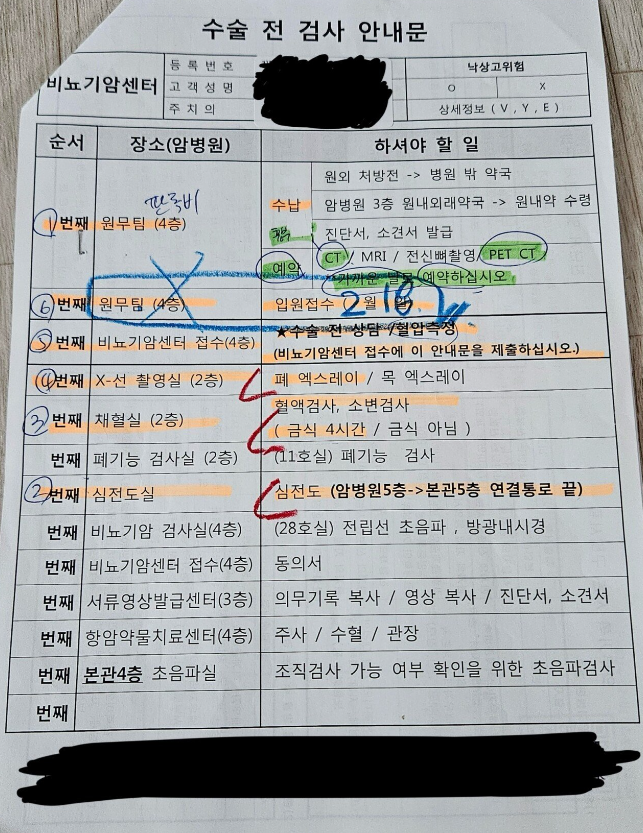 수술 전 검사 안내문
비뇨기암센터
등록번호
고객성명
주치의
낙상고위험
O X
상세정보 (V, Y, E)
순서 장소(암병원) 하셔야 할 일
①번째 원무팀 (4층)
수납
원외 처방전 -> 병원 밖 약국
암병원 3층 원내외래약국 -> 원내약 수령
진단서, 소견서 발급
예약
CT / MRI / 전신뼈촬영 / PET CT
가까운 날로 예약하십시오
⑥번째 원무팀 (4층) 입원접수 ( 2월 18일 )
⑤번째 비뇨기암센터 접수(4층) ★수술 전 상담 /혈압측정
(비뇨기암센터 접수에 이 안내문을 제출하십시오.)
④번째 X-선 촬영실 (2층) 폐 엑스레이 / 목 엑스레이
③번째 채혈실 (2층) 혈액검사, 소변검사
( 금식 4시간 / 금식 아님 )
번째 폐기능 검사실 (2층) (11호실) 폐기능 검사
②번째 심전도실 심전도 (암병원5층->본관5층 연결통로 끝)
번째 비뇨기암 검사실(4층) (28호실) 전립선 초음파 , 방광내시경
번째 비뇨기암센터 접수(4층) 동의서
번째 서류영상발급센터(3층) 의무기록 복사 / 영상 복사 / 진단서, 소견서
번째 항암약물치료센터(4층) 주사 / 수혈 / 관장
번째 본관4층 초음파실 조직검사 가능 여부 확인을 위한 초음파검사
번째